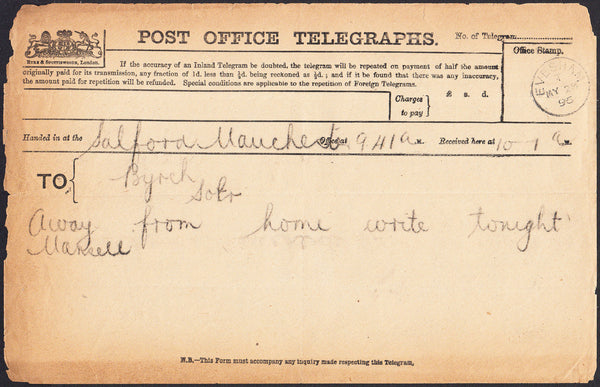 POST OFFICE TELEGRAPHS.
No. of Telegram
EYRE & SPOTTISWOODE, London.
If the accuracy of an Inland Telegram be doubted, the telegram will be repeated on payment of half the amount
originally paid for its transmission, any fraction of 1d. less than ½d. being reckoned as ½d.; and if it be found that there was any inaccuracy,
the amount paid for repetition will be refunded. Special conditions are applicable to the repetition of Foreign Telegrams.
Office Stamp.
EVESHAM
MY 28
95
Charges
to pay
£ s. d.
Handed in at the Salford Manchest Office at 9 41 a.m. Received here at 10-1 a.m.
TO { Byrch
Solr
Away from home write tonight
Mansell
N.B.—This Form must accompany any inquiry made respecting this Telegram.